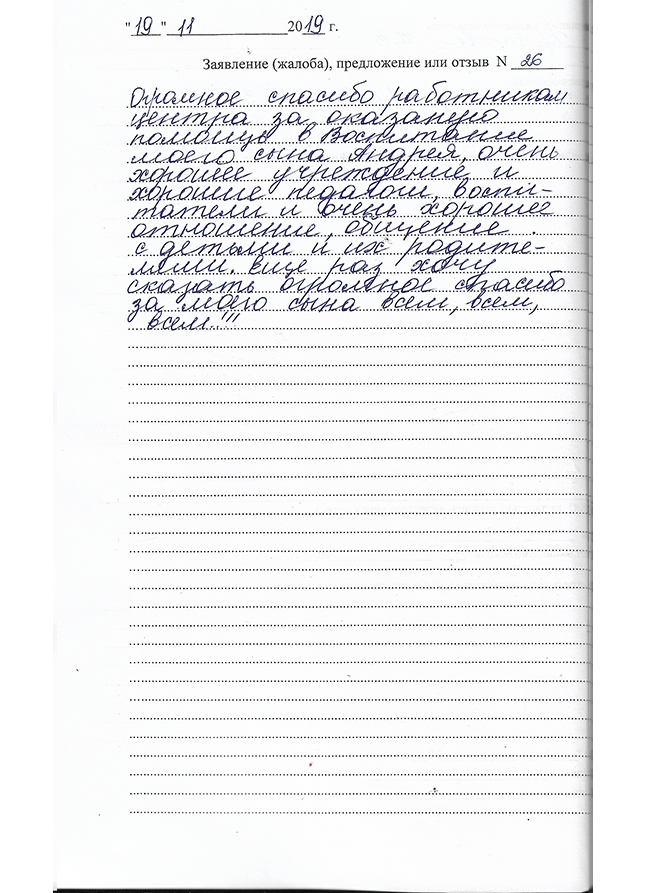 "19" 11 2019 г.
Заявление (жалоба), предложение или отзыв N 26
Огромное спасибо работникам
центра за оказаную
помощь в Воспитание
моего сына Андрея, очень
хорошее учреждение и
хорошие педагоги, воспи-
татели и очень хорошее
отношение, общение
с детьми и их родите-
лями. еще раз хочу
сказать огромное спасибо
за моего сына всем, всем,
всем!!!